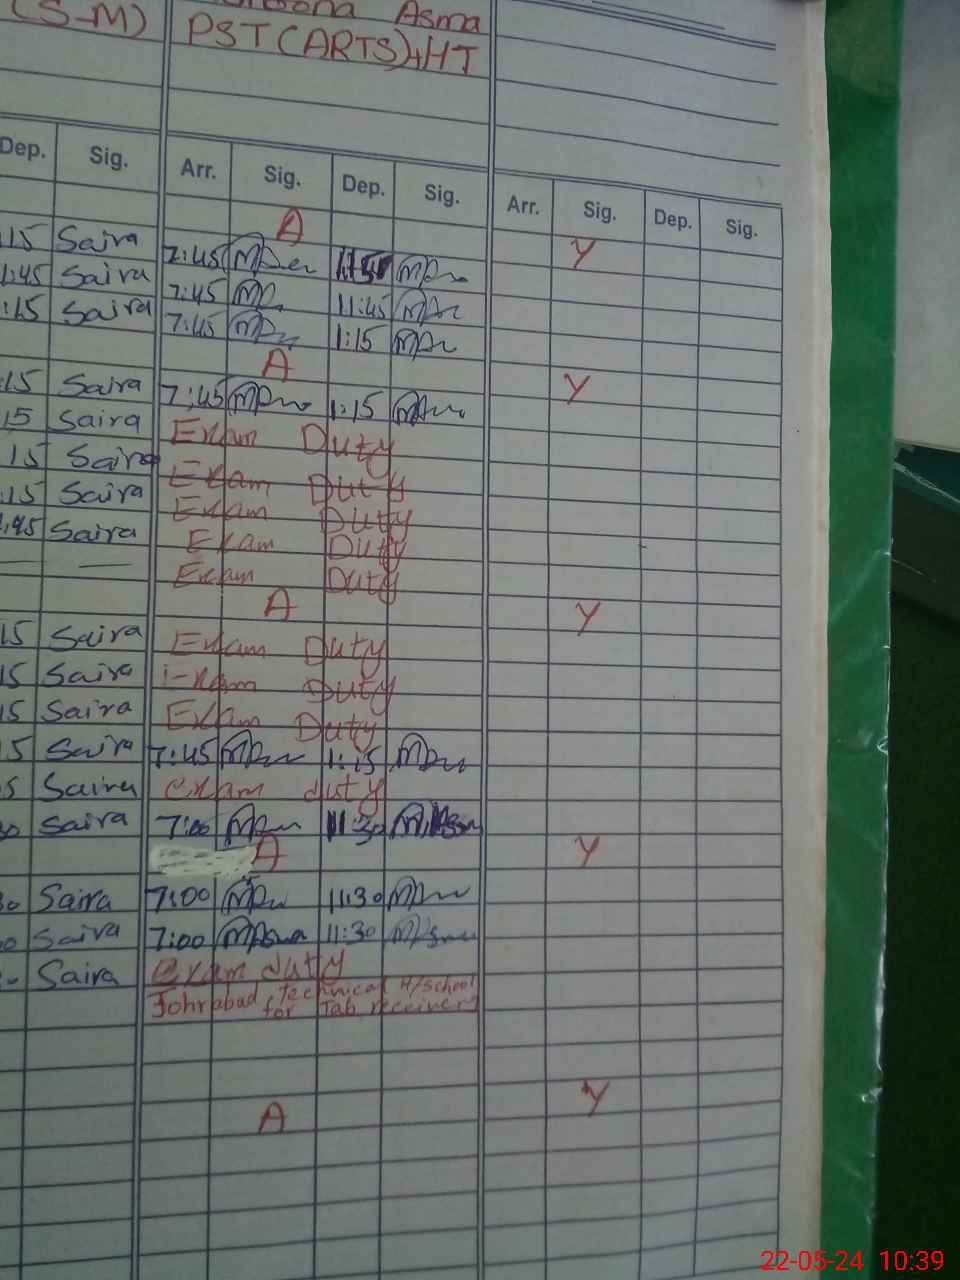 (S-M) Asma
PST (ARTS)+HT
Dep. Sig. Arr. Sig. Dep. Sig. Arr. Sig. Dep. Sig.
A Y
:15 Saira 7:45
:45 Saira 7:45 11:45
:15 Saira 7:45 1:15
A Y
:15 Saira 7:45 1:15
15 Saira Exam Duty
15 Saira Exam Duty
:15 Saira Exam Duty
:45 Saira Exam Duty
— — Exam Duty
A Y
15 Saira Exam Duty
15 Saira Exam Duty
15 Saira Exam Duty
5 Saira 7:45 1:15
5 Saira exam duty
30 Saira 7:00 11:30
A Y
30 Saira 7:00 11:30
0 Saira 7:00 11:30
Saira Exam duty
Johrabad technical H/School
for Tab receivers
A Y
22-05-24 10:39